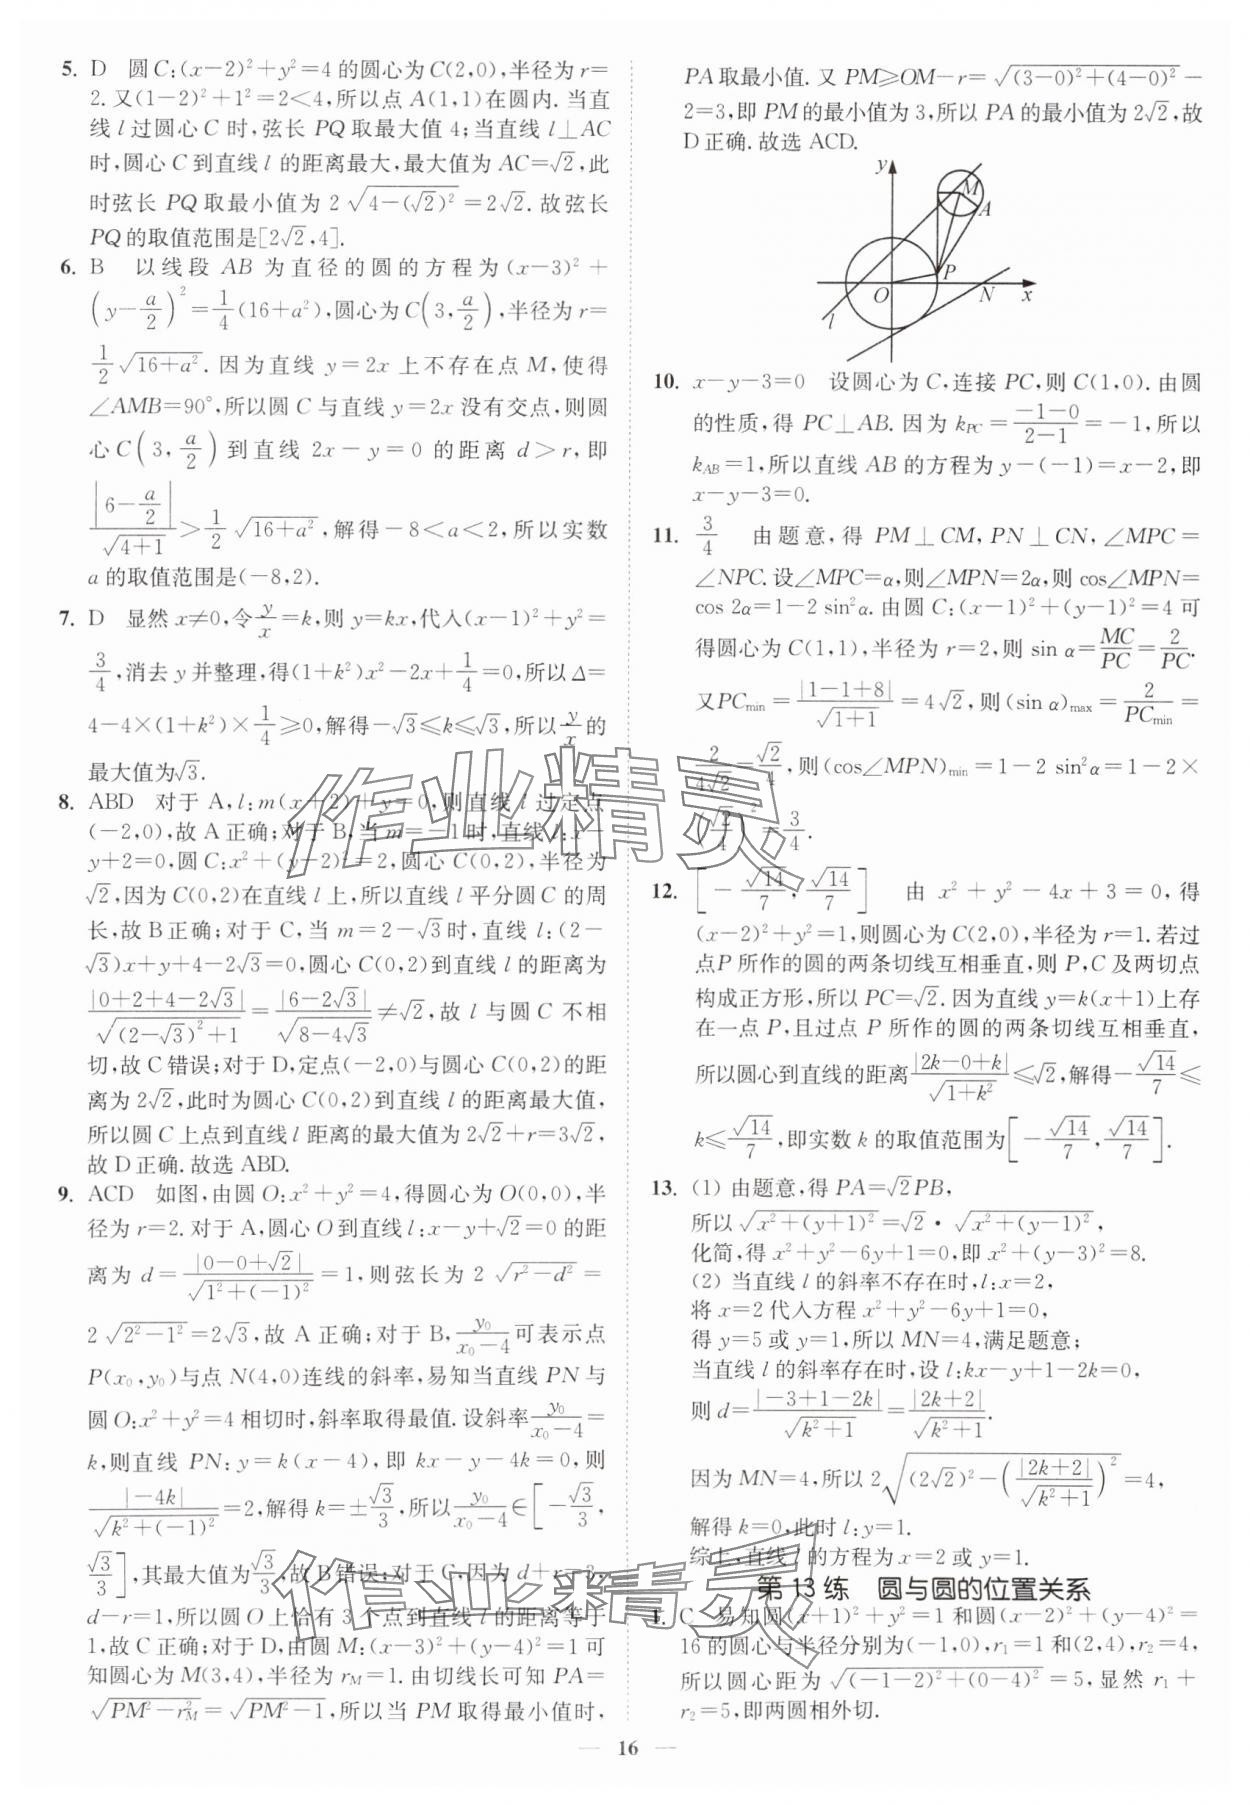 5. D 圆C:(x-2)²+y²=4的圆心为C(2,0),半径为r=
2.又(1-2)²+1²=2<4,所以点A(1,1)在圆内.当直
线l过圆心C时,弦长PQ取最大值4;当直线l⊥AC
时,圆心C到直线l的距离最大,最大值为AC=√2,此
时弦长PQ取最小值为2√(4-(√2)²)=2√2.故弦长
PQ的取值范围是[2√2,4].
6. B 以线段AB为直径的圆的方程为(x-3)²+
(y-a/2)²=1/4(16+a²),圆心为C(3,a/2),半径为r=
1/2√(16+a²).因为直线y=2x上不存在点M,使得
∠AMB=90°,所以圆C与直线y=2x没有交点,则圆
心C(3,a/2)到直线2x-y=0的距离d>r,即
|6-a/2|/√(4+1)>1/2√(16+a²),解得-8<a<2,所以实数
a的取值范围是(-8,2).
7. D 显然x≠0,令y/x=k,则y=kx,代入(x-1)²+y²=
3/4,消去y并整理,得(1+k²)x²-2x+1/4=0,所以Δ=
4-4×(1+k²)×1/4≥0,解得-√3≤k≤√3,所以y/x的
最大值为√3.
8. ABD 对于A,l:m(x+2)+y=0,则直线l过定点
(-2,0),故A正确;对于B,当m=-1时,直线l:x-
y+2=0,圆C:x²+(y-2)²=2,圆心C(0,2),半径为
√2,因为C(0,2)在直线l上,所以直线l平分圆C的周
长,故B正确;对于C,当m=2-√3时,直线l:(2-
√3)x+y+4-2√3=0,圆心C(0,2)到直线l的距离为
|0+2+4-2√3|/√((2-√3)²+1)=|6-2√3|/√(8-4√3)≠√2,故l与圆C不相
切,故C错误;对于D,定点(-2,0)与圆心C(0,2)的距
离为2√2,此时为圆心C(0,2)到直线l的距离最大值,
所以圆C上点到直线l距离的最大值为2√2+r=3√2,
故D正确.故选ABD.
9. ACD 如图,由圆O:x²+y²=4,得圆心为O(0,0),半
径为r=2.对于A,圆心O到直线l:x-y+√2=0的距
离为d=|0-0+√2|/√(1²+(-1)²)=1,则弦长为2√(r²-d²)=
2√(2²-1²)=2√3,故A正确;对于B,y₀/(x₀-4)可表示点
P(x₀,y₀)与点N(4,0)连线的斜率,易知当直线PN与
圆O:x²+y²=4相切时,斜率取得最值.设斜率y₀/(x₀-4)=
k,则直线PN:y=k(x-4),即kx-y-4k=0,则
|-4k|/√(k²+(-1)²)=2,解得k=±√3/3,所以y₀/(x₀-4)∈[-√3/3,
√3/3],其最大值为√3/3,故B错误;对于C,因为d+r=3,
d-r=1,所以圆O上恰有3个点到直线l的距离等于
1,故C正确;对于D,由圆M:(x-3)²+(y-4)²=1可
知圆心为M(3,4),半径为r_M=1.由切线长可知PA=
√(PM²-r_M²)=√(PM²-1),所以当PM取得最小值时,
PA取最小值.又PM≥OM-r=√((3-0)²+(4-0)²)-
2=3,即PM的最小值为3,所以PA的最小值为2√2,故
D正确.故选ACD.
y
M
A
P
O
N
x
l
10. x-y-3=0 设圆心为C,连接PC,则C(1,0).由圆
的性质,得PC⊥AB.因为k_PC=(-1-0)/(2-1)=-1,所以
k_AB=1,所以直线AB的方程为y-(-1)=x-2,即
x-y-3=0.
11. 3/4 由题意,得PM⊥CM,PN⊥CN,∠MPC=
∠NPC.设∠MPC=α,则∠MPN=2α,则cos∠MPN=
cos 2α=1-2 sin²α.由圆C:(x-1)²+(y-1)²=4可
得圆心为C(1,1),半径为r=2,则sin α=MC/PC=2/PC.
又PC_min=|1-1+8|/√(1+1)=4√2,则(sin α)_max=2/PC_min=
2/(4√2)=√2/4,则(cos∠MPN)_min=1-2 sin²α=1-2×
(√2/4)²=3/4.
12. [-√14/7,√14/7] 由x²+y²-4x+3=0,得
(x-2)²+y²=1,则圆心为C(2,0),半径为r=1.若过
点P所作的圆的两条切线互相垂直,则P,C及两切点
构成正方形,所以PC=√2.因为直线y=k(x+1)上存
在一点P,且过点P所作的圆的两条切线互相垂直,
所以圆心到直线的距离|2k-0+k|/√(1+k²)≤√2,解得-√14/7≤
k≤√14/7,即实数k的取值范围为[-√14/7,√14/7].
13. (1) 由题意,得PA=√2PB,
所以√(x²+(y+1)²)=√2·√(x²+(y-1)²),
化简,得x²+y²-6y+1=0,即x²+(y-3)²=8.
(2) 当直线l的斜率不存在时,l:x=2,
将x=2代入方程x²+y²-6y+1=0,
得y=5或y=1,所以MN=4,满足题意;
当直线l的斜率存在时,设l:kx-y+1-2k=0,
则d=|-3+1-2k|/√(k²+1)=|2k+2|/√(k²+1).
因为MN=4,所以2√((2√2)²-(|2k+2|/√(k²+1))²)=4,
解得k=0,此时l:y=1.
综上,直线l的方程为x=2或y=1.
第13练 圆与圆的位置关系
1. C 易知圆(x+1)²+y²=1和圆(x-2)²+(y-4)²=
16的圆心与半径分别为(-1,0),r₁=1和(2,4),r₂=4,
所以圆心距为√((-1-2)²+(0-4)²)=5,显然r₁+
r₂=5,即两圆相外切.
— 16 —
作业精灵
作业精灵